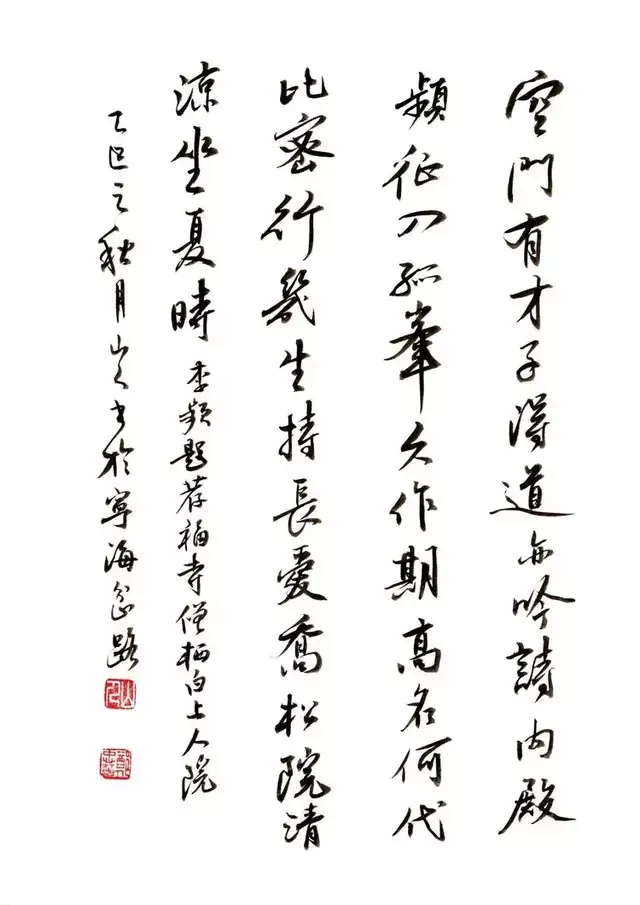 空門有才子得道亦吟詩内殿
頻征入孤峯久作期高名何代
比密行幾生持長愛喬松院清
涼坐夏時 李頻題荐福寺僧栖白上人院
乙巳之秋月山人书於寧海岔路